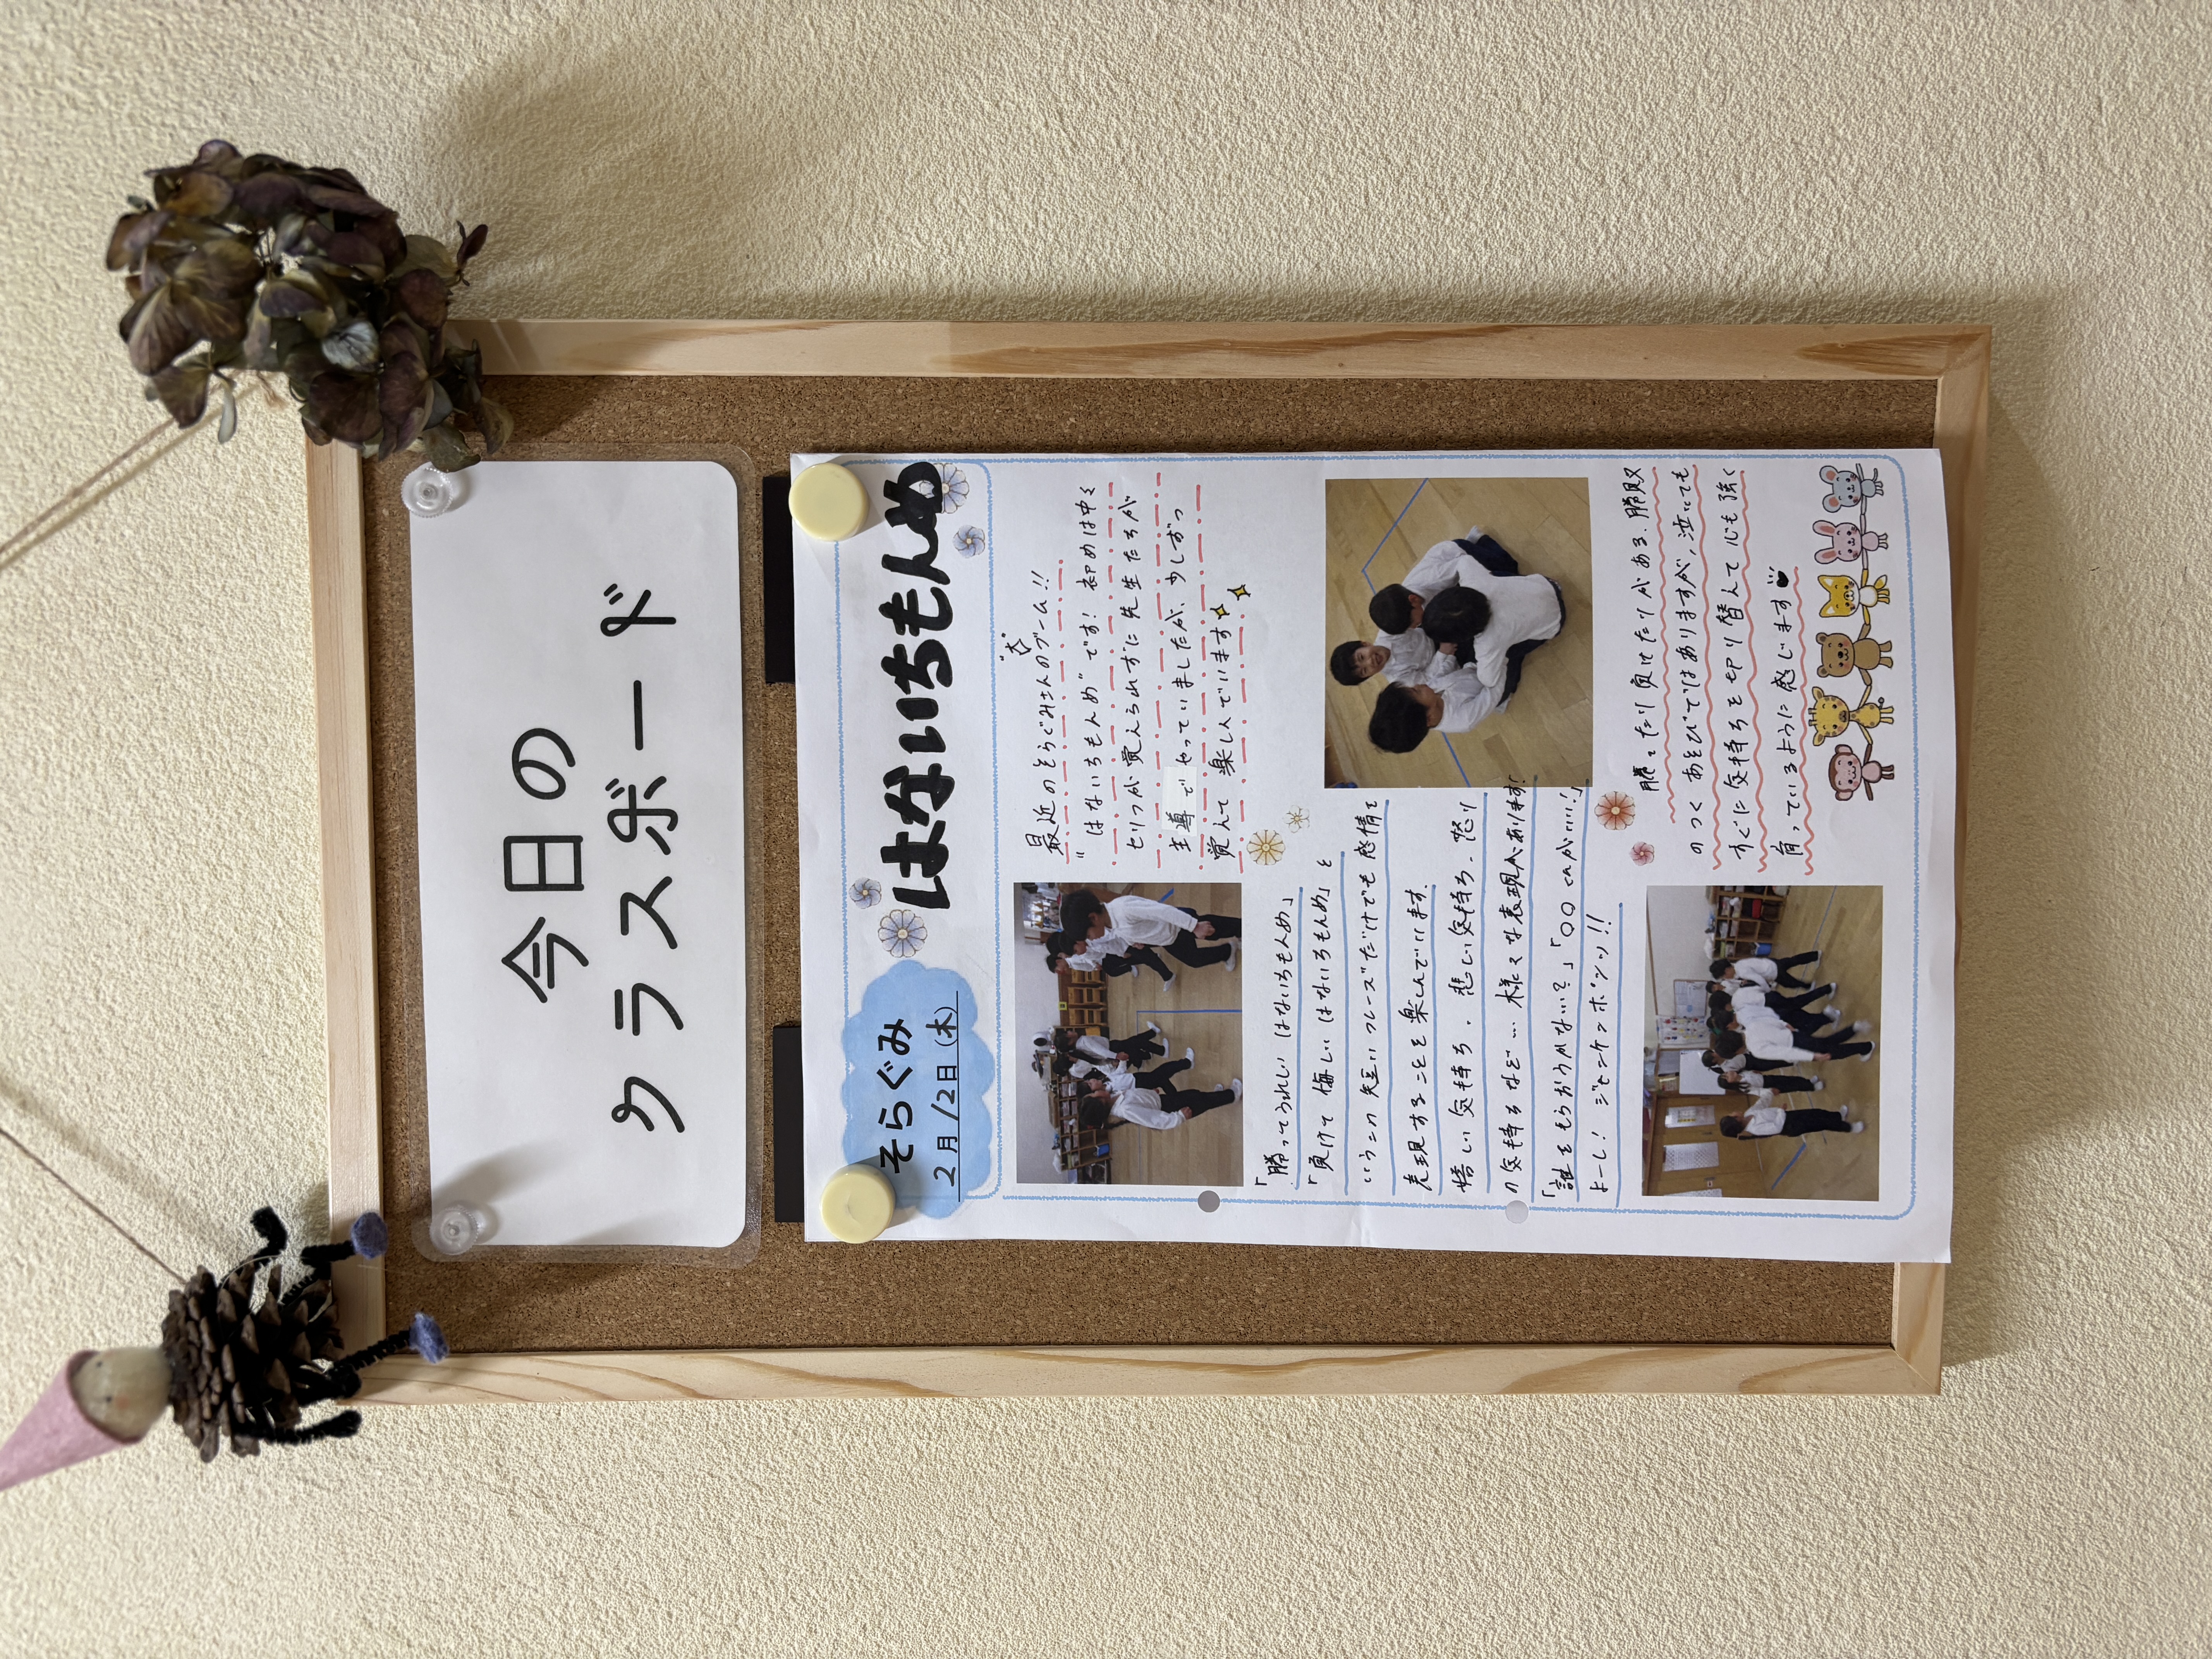 今日の
クラスボード
そらぐみ
2月/2日(木)
はないちもんめ
最近のそらぐみさんの"大"ブーム!!
"はないちもんめ"です!初めは中々
セリフが覚えられずに先生たちが
主導でやっていましたが、少しずつ
覚えて楽しんでいます
「勝ってうれしい はないちもんめ」
「負けて悔しい はないちもんめ」と
いうこの短いフレーズだけでも感情を
表現することを楽しんでいます。
嬉しい気持ち、悲しい気持ち、怒り
の気持ちなど…様々な表現があります!
「誰をもらおうかない?」「〇〇くんがいい!」
よーし! ジャンケンポンッ!!
勝ったり負けたりがある、勝敗
のつくあそびではありますが、泣いても
すぐに気持ちを切り替えて心も強く
育っているように感じます